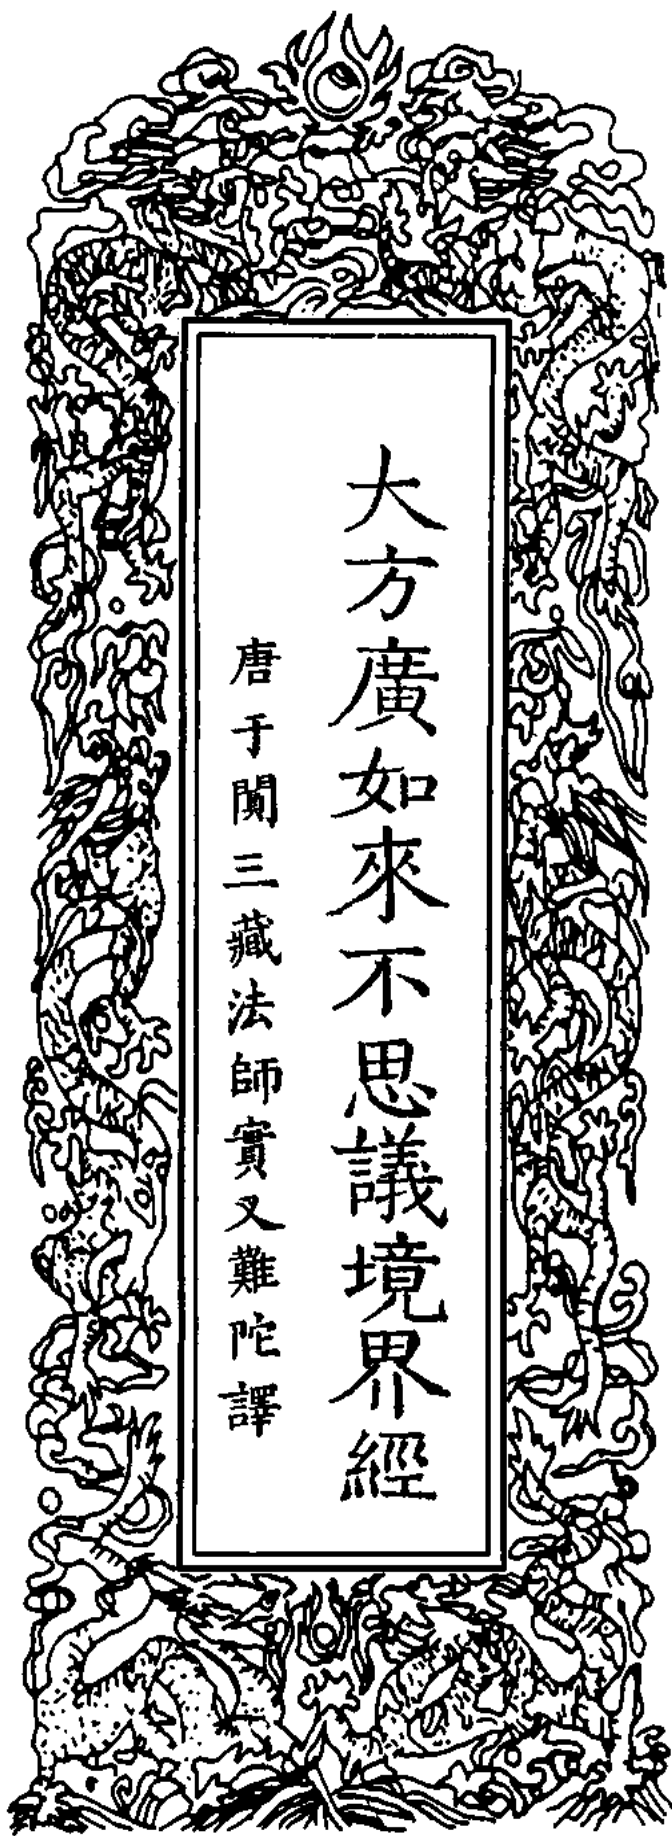 大方廣如來不思議境界經
唐于闐三藏法師實叉難陀譯